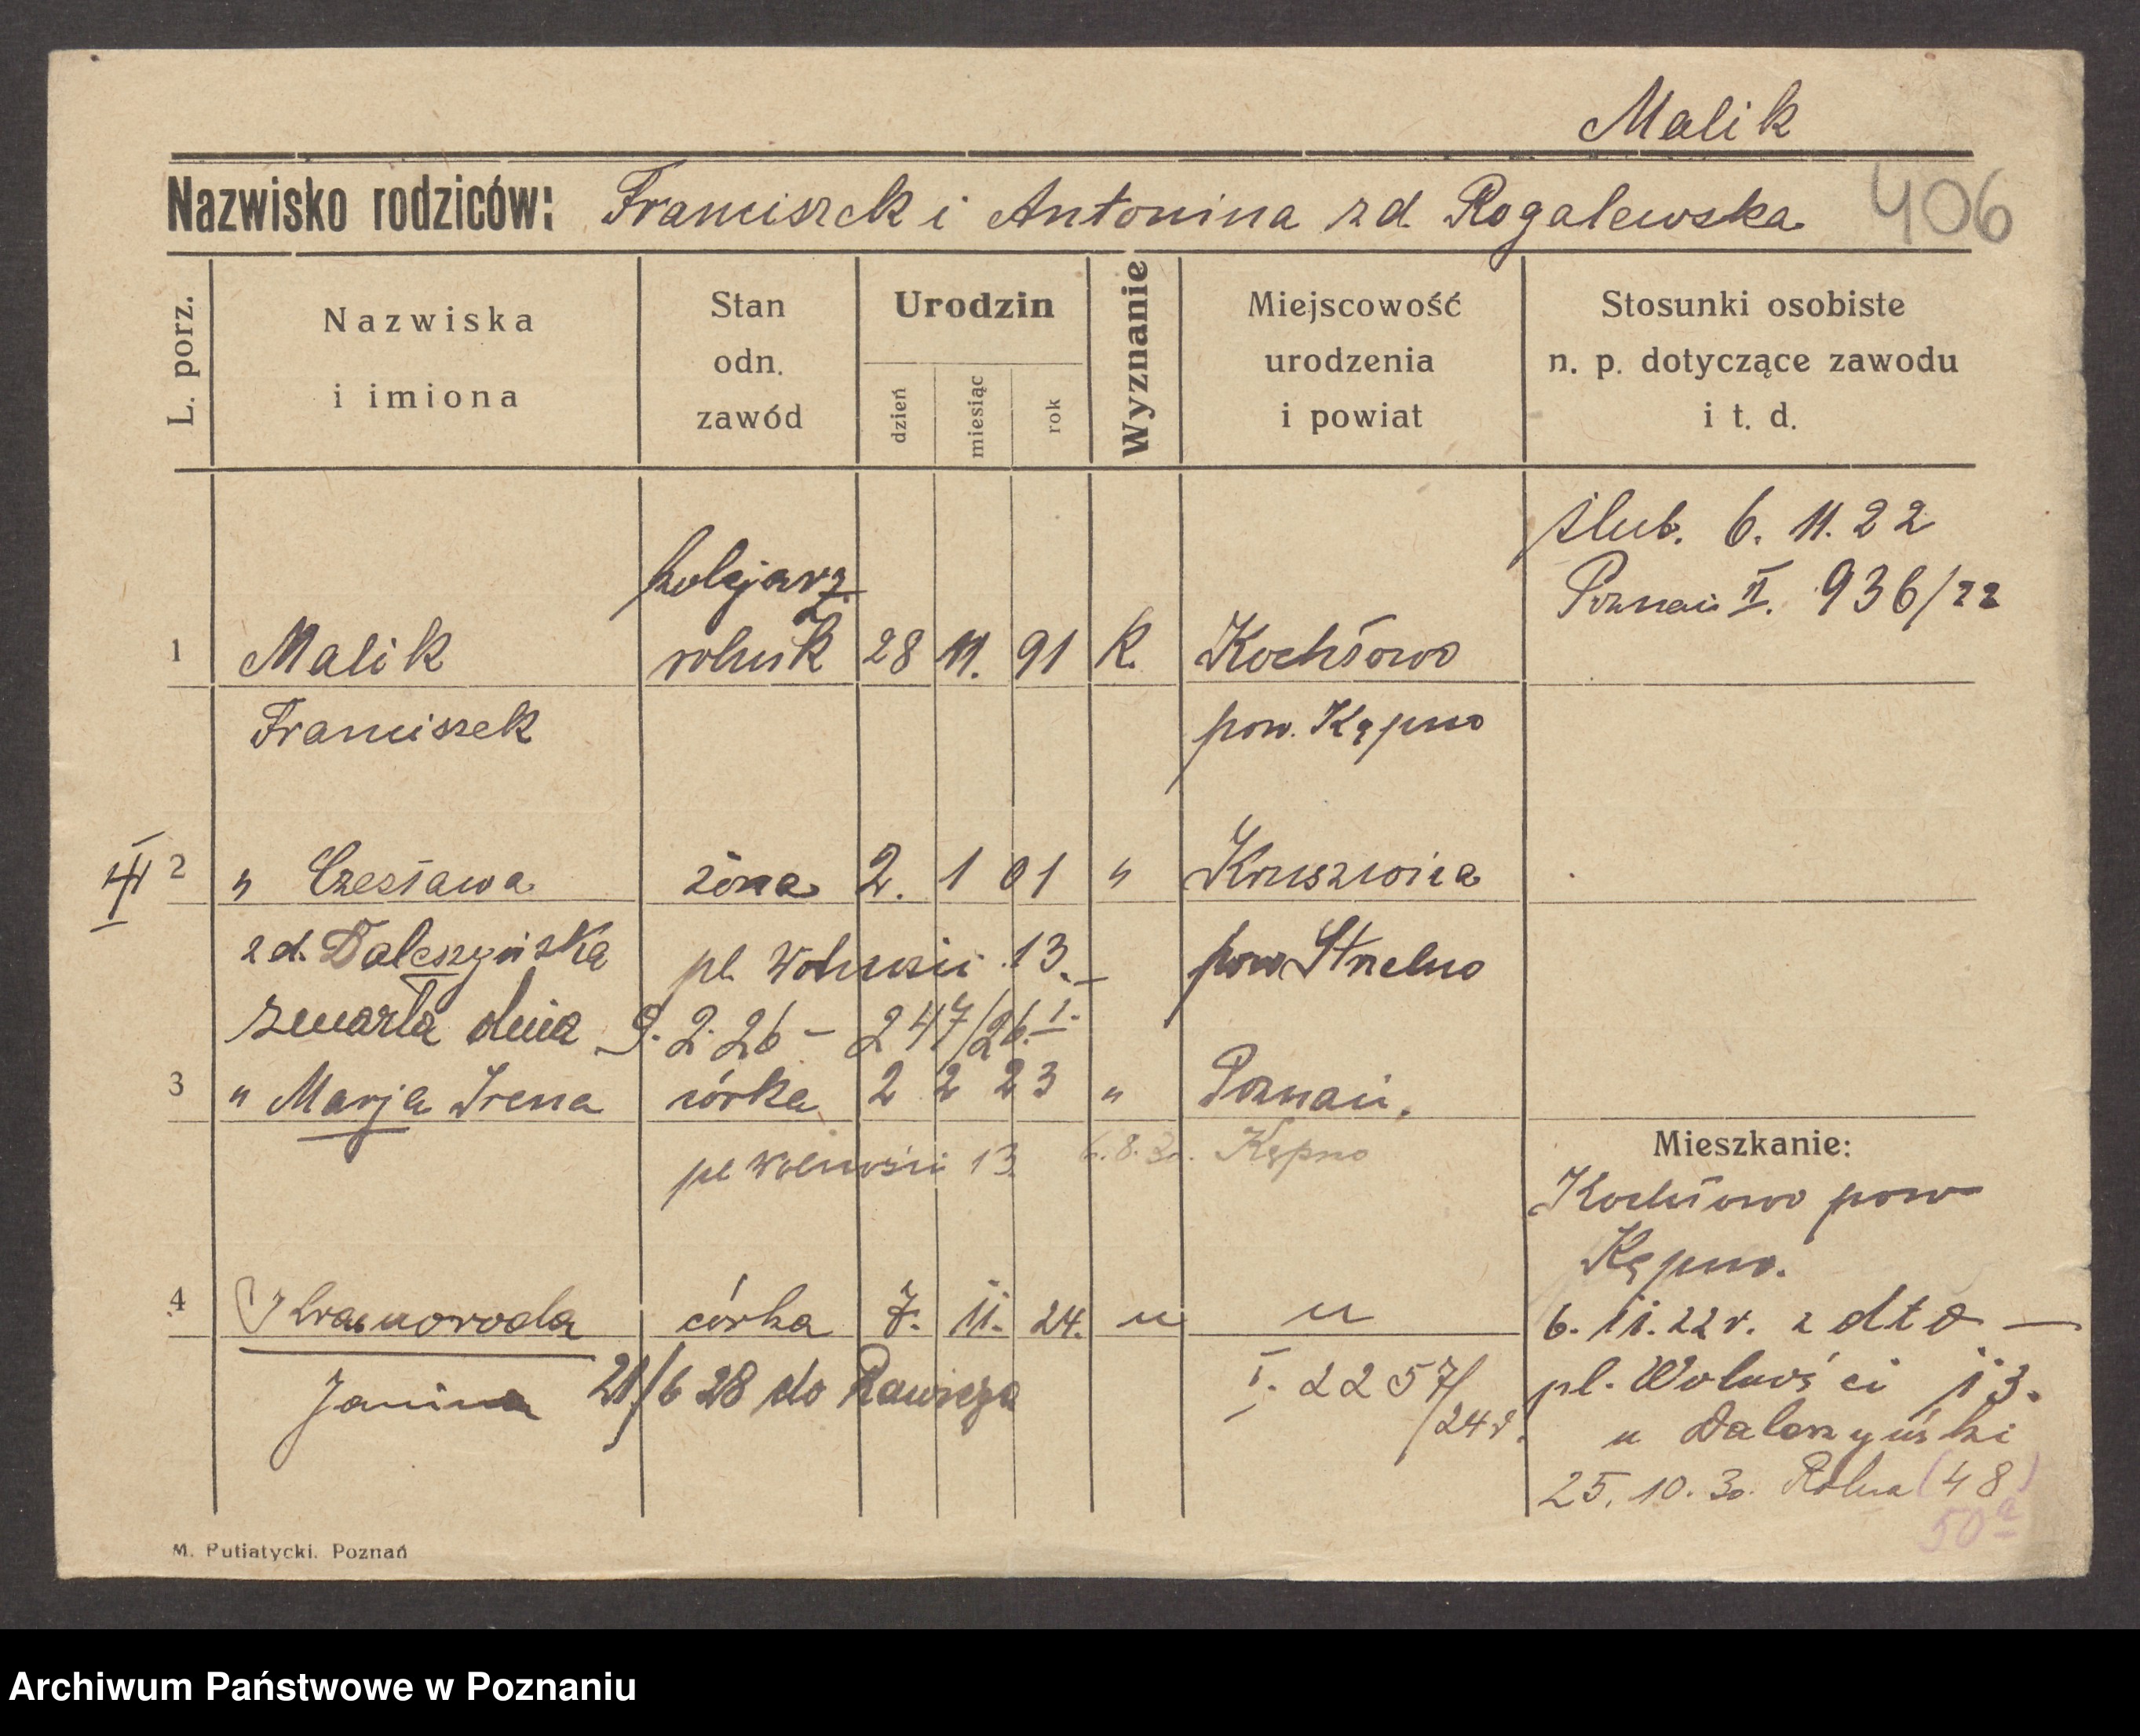 Malik
Nazwisko rodziców: Franciszek i Antonina zd. Rogalewska
406
L. porz.
Nazwiska i imiona
Stan odn. zawód
Urodzin
dzień miesiąc rok
Wyznanie
Miejscowość urodzenia i powiat
Stosunki osobiste n. p. dotyczące zawodu i t. d.
ślub. 6. 11. 22
Poznań II. 936/22
kolejarz
1 Malik rolnik 28 11. 91 K. Kochłowo
Franciszek pow. Kępno
2 " Czesława żona 2. 1 01 " Kruszwica
zd. Daleszyńska pl. Wolności 13. pow Strzelno
zmarła dnia 9. 2. 26 – 247/26. I.
3 " Marja Irena córka 2 2 23 " Poznań.
pl Wolności 13. 6.8.30. Kępno
Mieszkanie:
Kochłowo pow
Kępno.
4 córka 7. 11. 24. " "
6. 11. 22 r. z dto —
Janina 21/6 28 do Rawicza I. 2257/24 r.
pl. Wolności 13.
u Daleszyński
25. 10. 30. Rolna (48)
50a
M. Putiatycki. Poznań
Archiwum Państwowe w Poznaniu